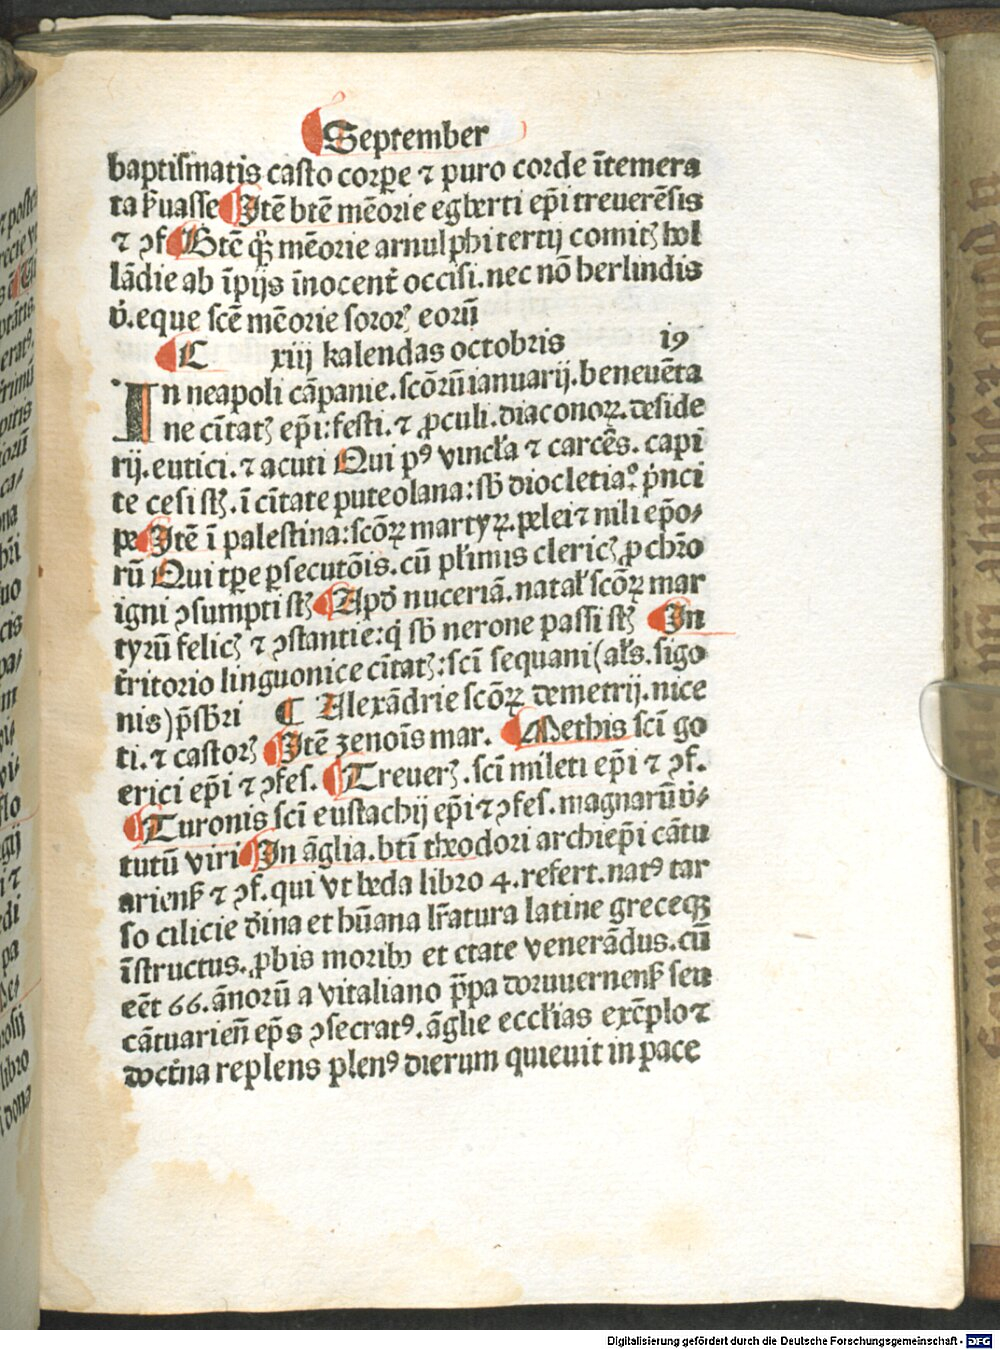 September
baptismatis casto corꝑe ⁊ puro corde ītemera
ta ẜuasse Itē btē mēorie egberti epī treuerēsis
⁊ ꝯf Btē qꝫ mēorie arnulphi tertij comitꝫ hol
lādie ab īpijs īnocent̄ occisi. nec nō berlindis
v̄. eque scē mēorie sororꝫ eorū
C xiij kalendas octobris 19
In neapoli cāpanie. scōrū ianuarij. beneuēta
ne cītatꝫ epī: festi. ⁊ ꝓculi. diaconoꝝ. deside
rij. eutici. ⁊ acuti Qui pꝰ vincła ⁊ carcēs. capi
te cesi sꝫ. ī cītate puteolana: sb̄ diocletiaº. p̄nci
pe Itē ī palestina: scōꝝ martyꝝ. pelei ⁊ nili epō⸗
rū Qui tꝑe ꝑsecutōis. cū pl̄imis clericꝫ ꝓ chr̄o
igni ꝯsumpti sꝫ Apd̄ nuceriā. natał scōꝝ mar
tyrū felicꝫ ⁊ ꝯstantie: q̄ sb̄ nerone passi sꝫ In
t̄ritorio linguonice cītatꝫ: scī sequani (ałs. sigo
nis) p̄sbr̄i Alexādrie scōꝝ demetrij. nice
ti. ⁊ castorꝫ Itē zenoīs mar. Methis scī go
erici epī ⁊ ꝯfes. Treuerꝫ. scī mileti epī ⁊ ꝯf.
Turonis scī eustachij epī ⁊ ꝯfes. magnarū v̄⸗
tutū viri In āglia. btī theodori archiepī cātu
arienẜ ⁊ ꝯf. qui vt beda libro 4. refert. natꝰ tar
so cilicie dīna et hūana lr̄atura latine greceqꝫ
īstructus. ꝓbis moribꝫ et etate venerādus. cū
eēt 66. ānorū a vitaliano p̄pa doruuernenẜ seu
cātuarieñ ep̄s ꝯsecratꝰ. āglie eccłias exēplo ⁊
doct̄na replens plenꝰ dierum quieuit in pace
Digitalisierung gefördert durch die Deutsche Forschungsgemeinschaft - DFG